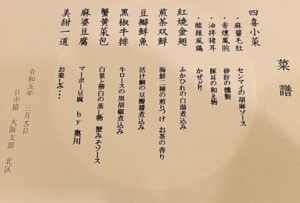 菜譜
四喜小菜
・麻醤毛肚 センマイの胡麻ソース
・香燻鳳胗 砂肝の燻製
・油拌猪耳 豚耳の和え物
・酸辣風鶏 かぜどり
紅焼金翅 ふかひれの白湯煮込み
煎茶双鮮 海鮮二種の煎りつけ お茶の香り
豆瓣鮮魚 活け鯛の豆瓣醤煮込み
黒椒牛排 牛ロースの黒胡椒煮込み
蟹黄菜包 白菜と豚白の蒸し物 蟹みそソース
麻婆豆腐 マーボー豆腐 by 奥川
美甜一道 お楽しみ…
令和五年 三月
日中協 大阪支部 北区